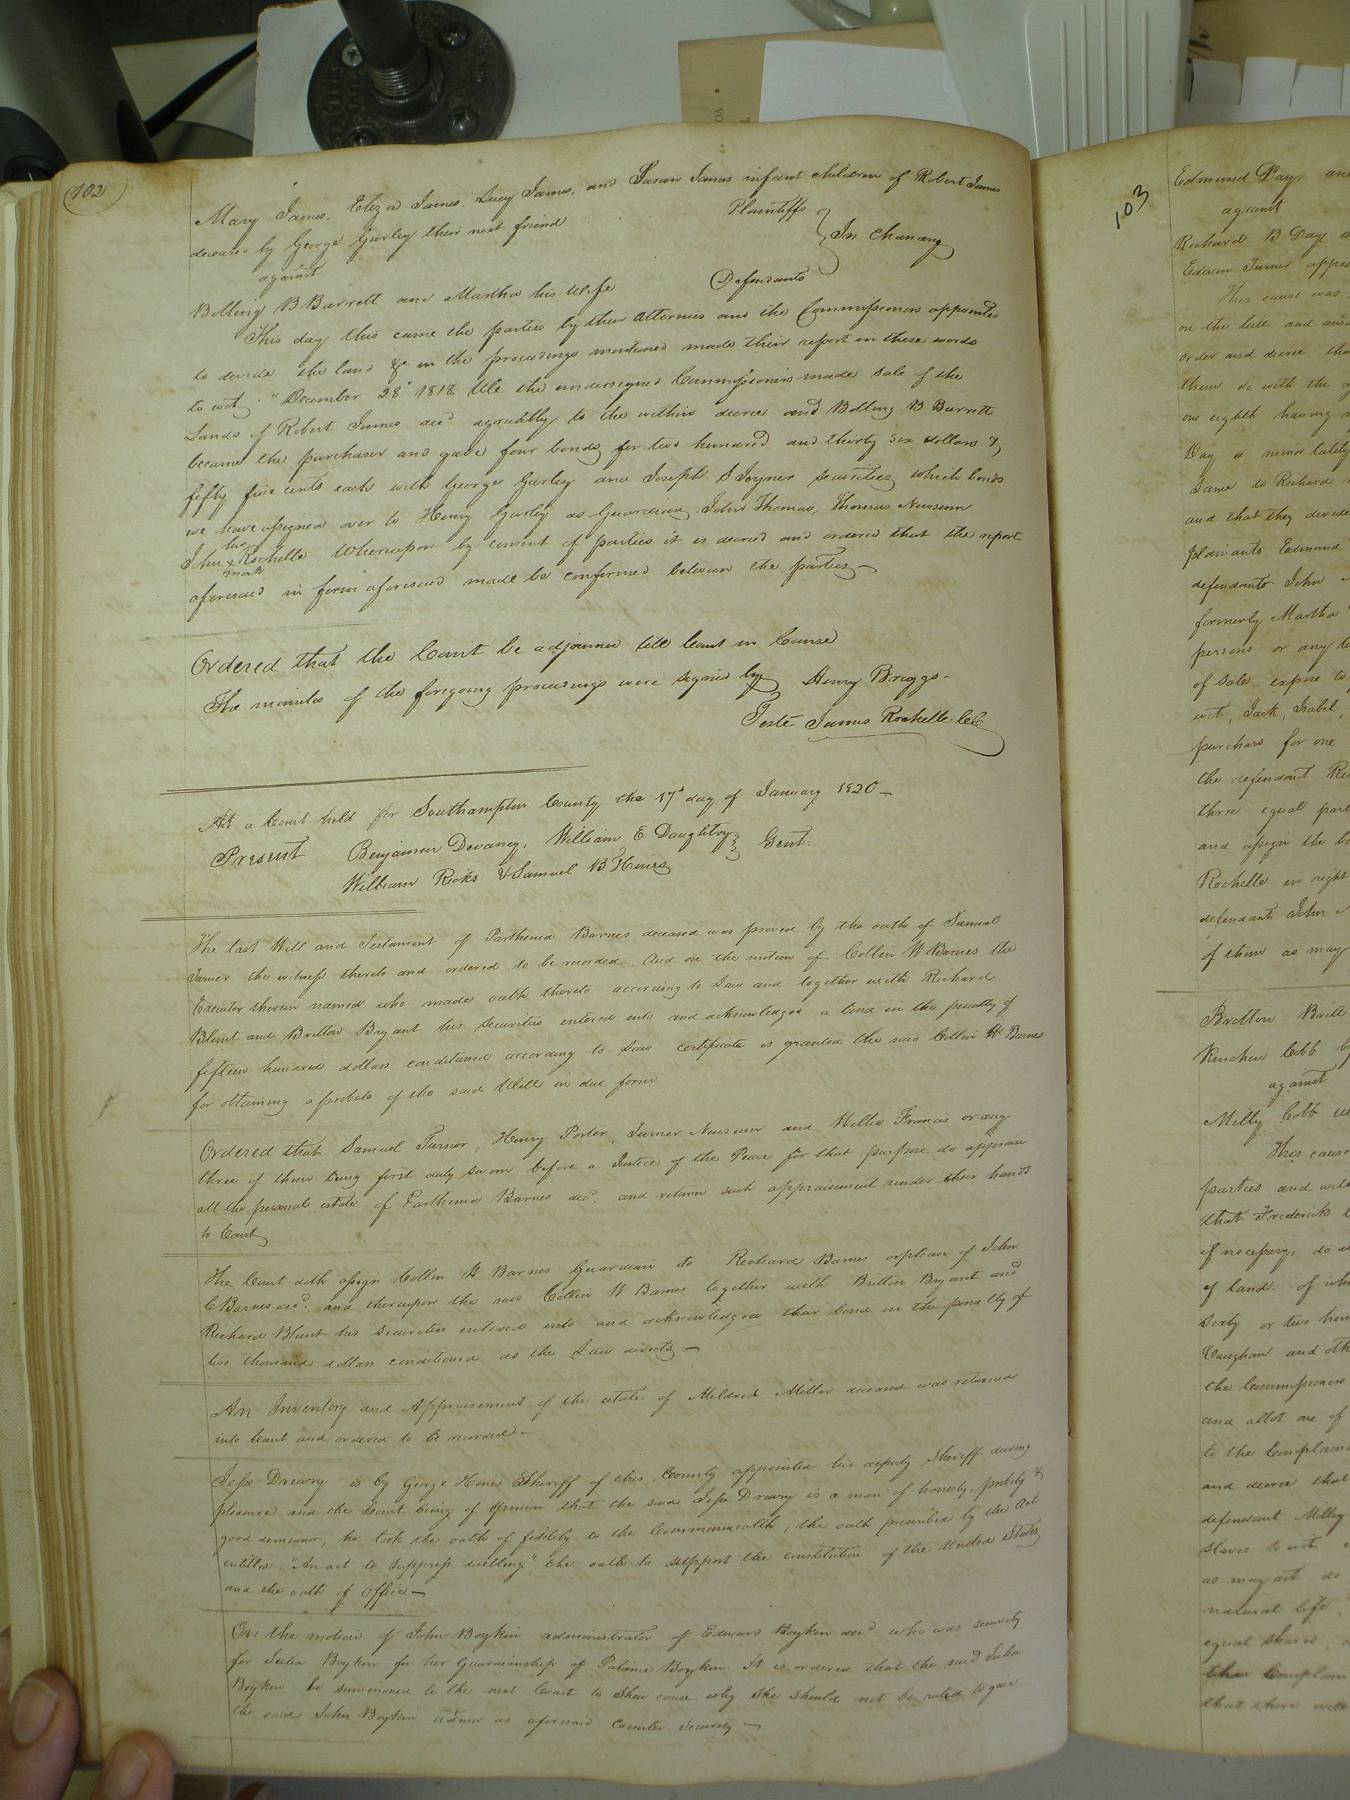 102
Mary James, Eliza James, Lucy James, and Susan James infant children of Robert James
deceased by George Gurley their next friend Plaintiffs
against } In Chancery
Bolling B Barrett and Martha his wife Defendants
This day this came the parties by their attornies and the Commissioners appointed
to divide the land &c in the proceedings mentioned made their report in these words
to wit. "December 28th 1818. We the undersigned Commissioners made sale of the
Lands of Robert James decd agreeably to the within decree and Bolling B Barrett
became the purchaser and gave four bonds for two hundred and thirty six dollars &
fifty five cents each with George Gurley and Joseph S Joyner securities which bonds
we have assigned over to Henry Gurley as Guardian. John Thomas, Thomas Newsum
John his x mark Rochelle Whereupon by consent of parties it is decreed and ordered that the report
aforesaid in form aforesaid made be confirmed between the parties —
Ordered that the Court be adjourned till Court in Course
The minutes of the foregoing proceedings were signed by Henry Briggs -
Teste James Rochelle CC
At a Court held for Southampton County the 17th day of January 1820 —
Present Benjamin Devaney, William E Daughtry }
William Ricks & Samuel B Hines } Gent.
The last Will and Testament of Parthenia Barnes deceased was proved by the oath of Samuel
Turner the witness thereto and ordered to be recorded. And on the motion of Collin W Barnes the
Executor therein named who made oath thereto according to Law and together with Richard
Blunt and Britton Bryant his Securities entered into and acknowledged a bond in the penalty of
fifteen hundred dollars conditioned according to Law certificate is granted the said Collin W Barnes
for obtaining a probate of the said Will in due form
Ordered that Samuel Turner, Henry Porter, Turner Newsum and Willie Francis or any
three of them being first duly sworn before a Justice of the Peace for that purpose do appraise
all the personal estate of Parthenia Barnes decd. and return such appraisement under their hands
to Court
The Court doth assign Collin W Barnes Guardian to Richard Barnes orphan of John
C Barnes decd. and thereupon the said Collin W Barnes together with Britton Bryant and
Richard Blunt his Securities entered into and acknowledged their bond in the penalty of
two thousand dollars conditioned as the Law directs —
An Inventory and Appraisement of the estate of Mildred Miller deceased was returned
into Court and ordered to be recorded —
Jesse Drewry is by George Hines Sheriff of this County appointed his deputy Sheriff during
pleasure and the Court being of opinion that the said Jesse Drewry is a man of honesty, probity &
good demeanor, he took the oath of fidelity to the Commonwealth, the oath prescribed by the Act
entitled, "An act to suppress duelling" the oath to support the constitution of the United States
and the oath of Office —
On the motion of John Boykin administrator of Edward Boykin decd who was security
for Julia Boykin for her Guardianship of Boykin. It is ordered that the said Julia
Boykin be summoned to the next Court to Shew cause why she should not be ruled to give
the said John Boykin admor as aforesaid Counter Security —
103
Edmund Day, and
against
Richard B Day
Edwin Turner
This cause was
on the bill and
order and decree that
them do with the
one eighth having
Day a minor lately
same to Richard
and that they divide
plaintiffs Edmund
defendants John
formerly Martha
persons or any
of Sale expose to
wit, Jack, Isabel,
purchase for one
the defendant
three equal part
and assign the
Rochelle in right
defendants John
of them as may
Britton Britt
Kinchen Cobb by
against
Milly Cobb
This cause
parties and
that Frederick
if necessary, do
of land. of
Sixty or two
Vaughan and
the Commissioners
and allot one of
to the Complain
and decree that
defendant Milly
slaves to wit
as may act do
natural life
equal shares
than Complain
that there